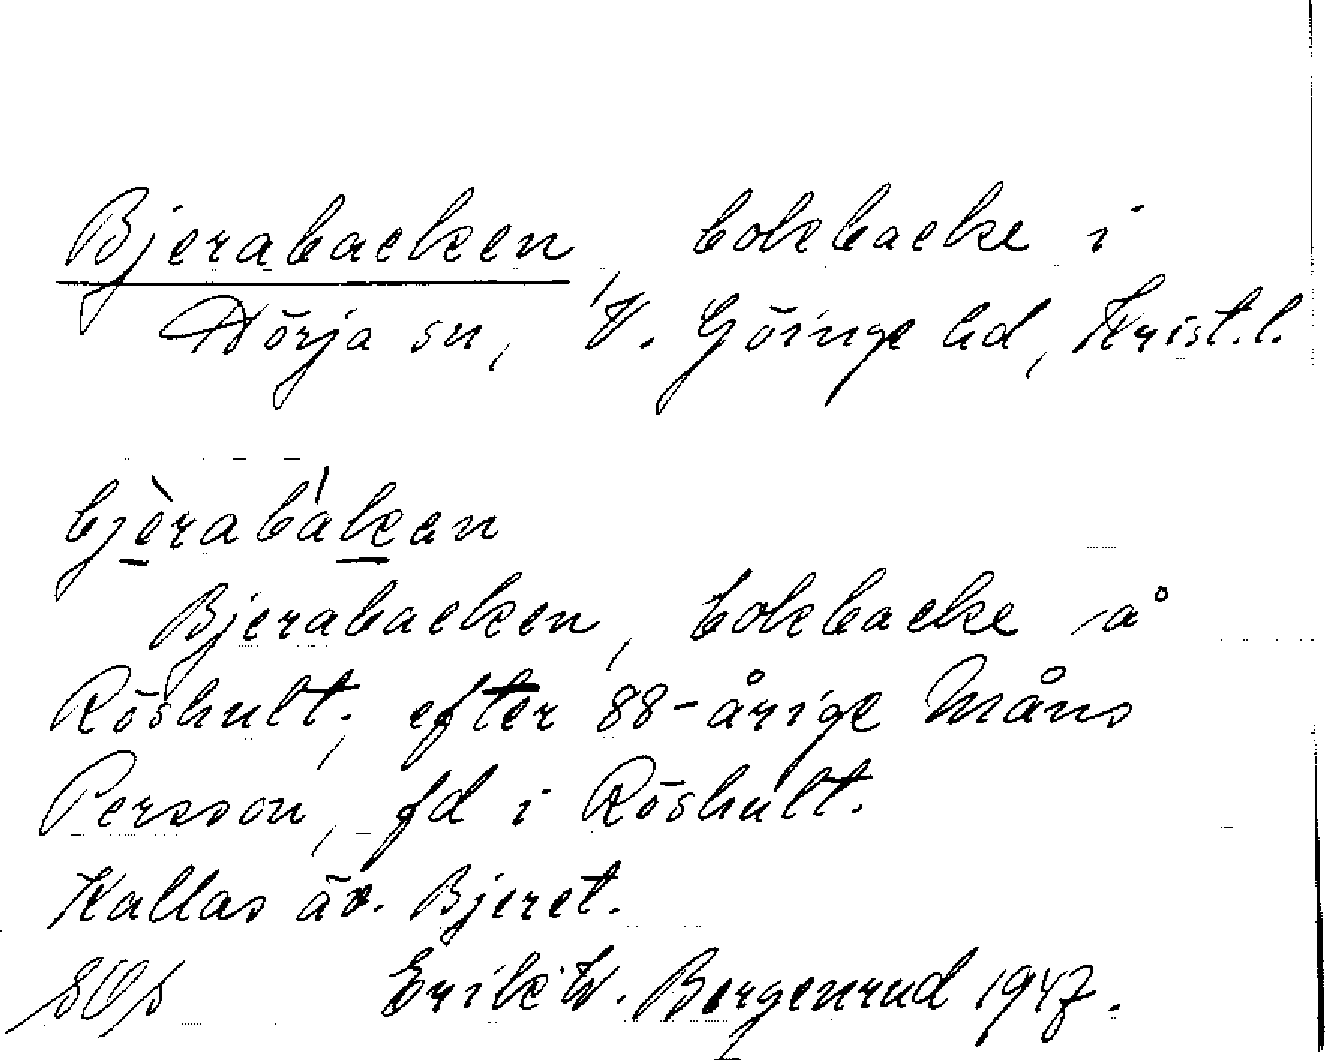 Bjerabacken, bokbacke i
Nörja sn, V. Göinge hd, Krist.l.
bjèrabákan
Bjerabacken, bokbacke å
Röshult, efter 88-årige Måns
Persson, fd i Röshult.
Kallas äv. Bjeret.
Erik W. Borgenrud 1947.